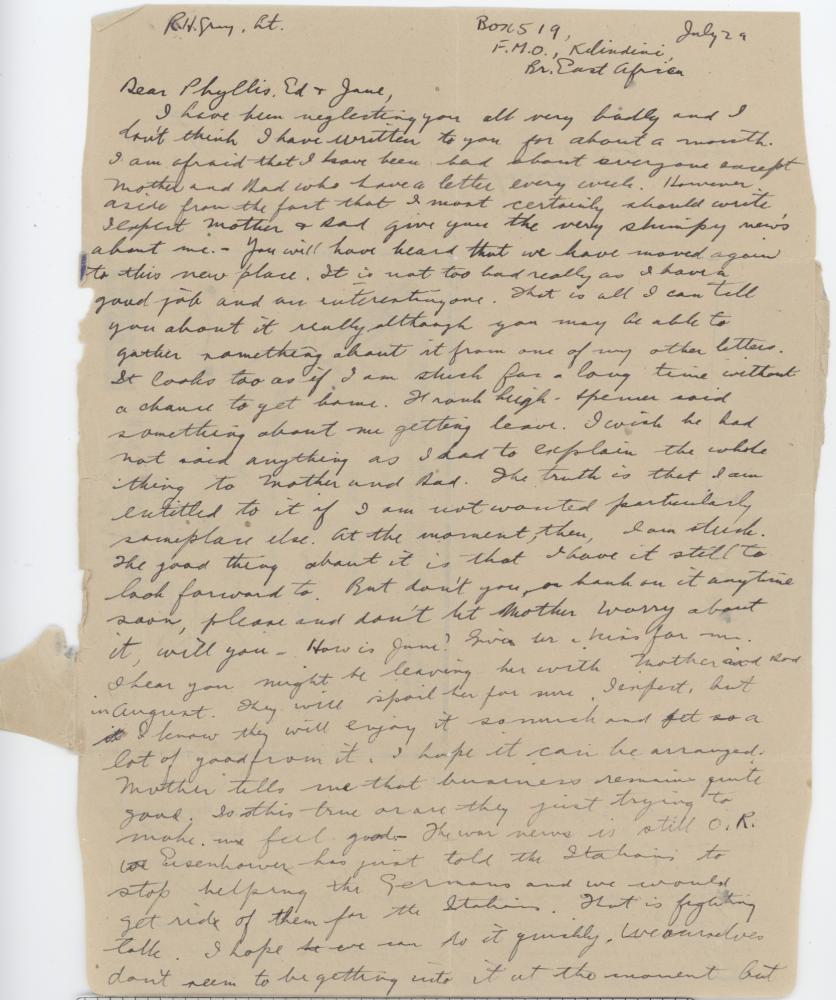 R.H. Gray, Lt.
Box 519, July 29
F.M.O., Kilindini,
Br. East Africa
Dear Phyllis, Ed + Jane,
I have been neglecting you all very badly and I
don't think I have written to you for about a month.
I am afraid that I have been bad about everyone except
Mother and Dad who have a letter every week. However,
aside from the fact that I most certainly should write
I expect Mother & Dad give you the very skimpy news
about me. - You will have heard that we have moved again
to this new place. It is not too bad really as I have a
good job and an interesting one. That is all I can tell
you about it really although you may be able to
gather something about it from one of my other letters.
It looks too as if I am stuck for a long time without
a chance to get home. Frank Leigh-Spencer said
something about me getting leave. I wish he had
not said anything as I had to explain the whole
thing to Mother and Dad. The truth is that I am
entitled to it if I am not wanted particularly
someplace else. At the moment, then, I am stuck.
The good thing about it is that I have it still to
look forward to. But don't you bank on it anytime
soon, please and don't let Mother worry about
it, will you - How is Jane? Give her a kiss for me.
I hear you might be leaving her with Mother and Dad
in August. They will spoil her for sure, I expect, but
I know they will enjoy it so much and get so a
lot of good from it. I hope it can be arranged.
Mother tells me that business remains quite
good. Is this true or are they just trying to
make me feel good - The war news is still O.K.
Eisenhower has just told the Italians to
stop helping the Germans and we would
get ride of them for the Italians. That is fighting
talk. I hope we can do it quickly. We ourselves
don't seem to be getting into it at the moment but